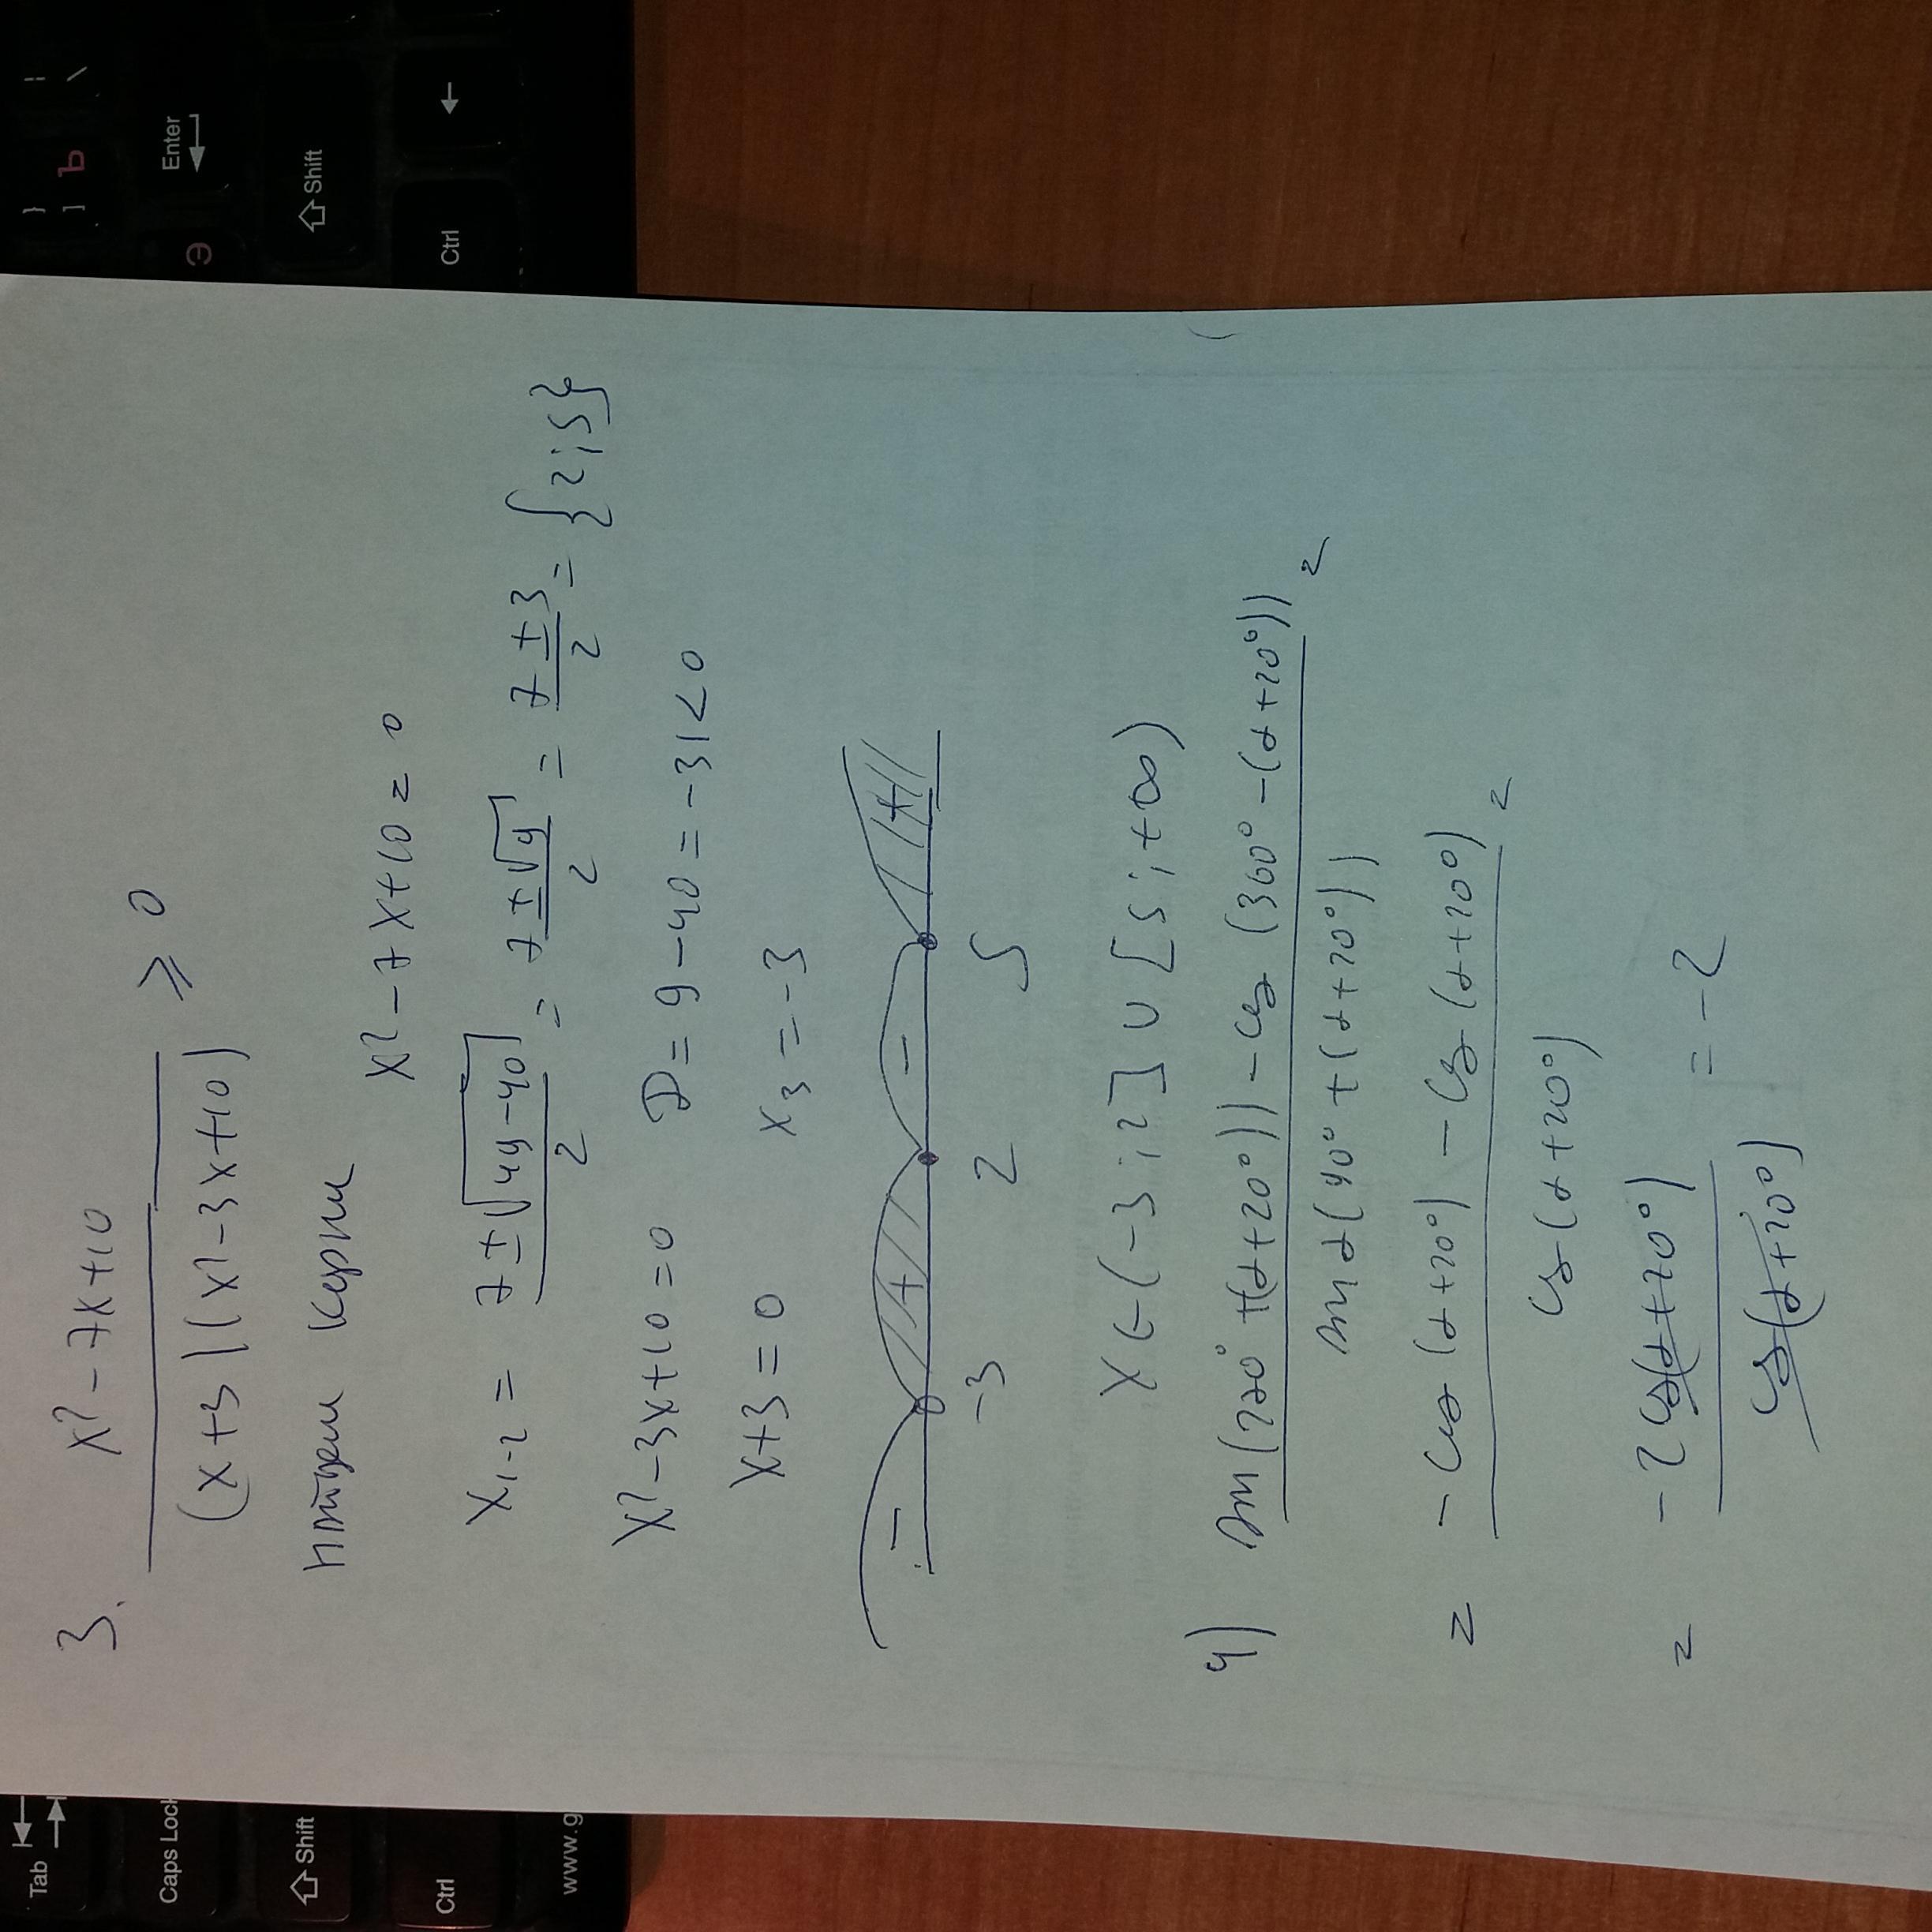 3. x² - 7x+10
(x+3)(x²-3x+10) ⩾ 0
корни
x² - 7x+10 = 0
x₁₋₂ = 7 ± √49-40 / 2 = 7 ± √9 / 2 = 7 ± 3 / 2 = {2;5}
x²-3x+10=0 D = 9 -40 = -31 < 0
x+3 = 0 x₃ = -3
- + - +
-3 2 5
x ∈ (-3;2] ∪ [5;+∞)
4) sin(270° +(α+20°)) - cos (360° -(α+20°)) =
+(α+20°))
= - cos (α+20°) - cos (α+20°) =
cos (α+20°)
= - 2 cos(α+20°) = -2
cos(α+20°)
Tab
Caps Lock
Shift
Ctrl
www.g
} ] Ъ | \
Э Enter
Shift
Ctrl